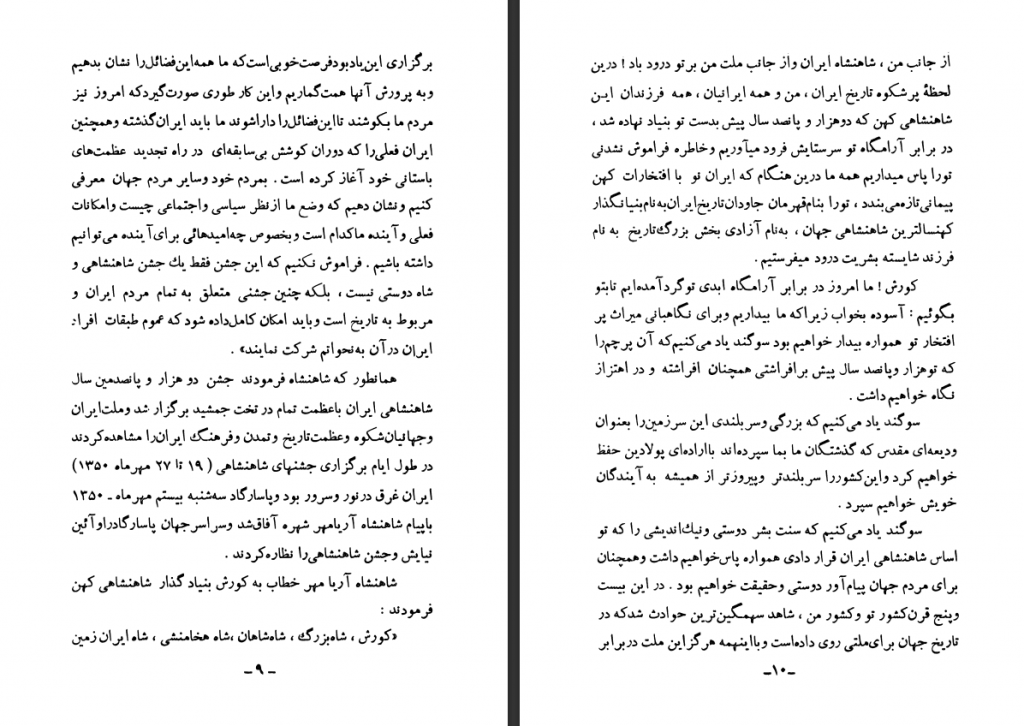 برگزاری این‌یادبودفرصت‌خوبی‌است‌که ما همه‌این‌فضائل‌را نشان بدهیم
وبه پرورش آنها همت‌گماریم واین کار طوری صورت‌گیردکه امروز نیز
مردم ما بکوشند تااین‌فضائل‌را داراشوند ما باید ایران‌گذشته وهمچنین
ایران فعلی‌را که دوران کوشش بی‌سابقه‌ای در راه تجدید عظمت‌های
باستانی خود آغاز کرده است . بمردم خود وسایر مردم جهان معرفی
کنیم ونشان دهیم که وضع ما ازنظر سیاسی واجتماعی چیست وامکانات
فعلی وآینده ماکدام است وبخصوص چه‌امیدهائی برای‌آینده می‌توانیم
داشته باشیم . فراموش نکنیم که این جشن فقط یك جشن شاهنشاهی و
شاه دوستی نیست ، بلکه چنین جشنی متعلق به تمام مردم ایران و
مربوط به تاریخ است وباید امکان کامل‌داده شود که عموم طبقات افراد
ایران درآن به‌نحواتم شرکت نمایند» .
همانطور که شاهنشاه فرمودند جشن دو هزار و پانصدمین سال
شاهنشاهی ایران باعظمت تمام در تخت جمشید برگزار شد وملت‌ایران
وجهانیان‌شکوه وعظمت‌تاریخ وتمدن وفرهنگ ایران‌را مشاهده‌کردند
در طول ایام برگزاری جشنهای شاهنشاهی ( ۱۹ تا ۲۷ مهرماه ۱۳۵۰)
ایران غرق درنور وسرور بود وپاسارگاد سه‌شنبه بیستم مهرماه ـ ۱۳۵۰
باپیام شاهنشاه آریامهر شهره آفاق‌شد وسراسرجهان پاسارگادراوآئین
نیایش وجشن شاهنشاهی‌را نظاره‌کردند .
شاهنشاه آریا مهر خطاب به کورش بنیاد گذار شاهنشاهی کهن
فرمودند :
«کورش ، شاه‌بزرگ ، شاه‌شاهان ،شاه هخامنشی ، شاه ایران زمین
ـ ۹ ـ
از جانب من ، شاهنشاه ایران واز جانب ملت من برتو درود باد ! درین
لحظهٔ پرشکوه تاریخ ایران ، من و همه ایرانیان ، همه فرزندان ایـن
شاهنشاهی کهن که دوهزار و پانصد سال پیش بدست تو بنیاد نهاده شد ،
در برابر آرامگاه تو سرستایش فرود میآوریم وخاطره فراموش نشدنی
تورا پاس میداریم همه ما درین هنگام که ایران نو با افتخارات کهن
پیمانی‌تازه‌می‌بندد ، تورا بنام‌قهرمان جاودان‌تاریخ‌ایران‌به‌نام‌بنیانگذار
کهنسالترین شاهنشاهی جهان ، به‌نام آزادی بخش بزرگ‌تاریخ به نام
فرزند شایسته بشریت درود میفرستیم .
کورش ! ما امروز در برابر آرامگاه ابدی توگردآمده‌ایم تابتو
بگوئیم : آسوده بخواب زیراکه ما بیداریم وبرای نگاهبانی میراث پر
افتخار تو همواره بیدار خواهیم بود سوگند یاد می‌کنیم‌که آن پرچم‌را
که توهزار وپانصد سال پیش برافراشتی همچنان افراشته و در اهتزاز
نگاه خواهیم‌داشت .
سوگند یاد می‌کنیم که بزرگی وسربلندی این سرزمین‌را بعنوان
ودیعه‌ای مقدس که گذشتگان ما بما سپرده‌اند بااراده‌ای پولادین حفظ
خواهیم کرد واین‌کشوررا سربلندتر وپیروزتر از همیشه به آیندگان
خویش خواهیم سپرد .
سوگند یاد می‌کنیم که سنت بشر دوستی ونیك‌اندیشی را که تو
اساس شاهنشاهی ایران قرار دادی همواره پاس‌خواهیم داشت وهمچنان
برای مردم جهان پیام‌آور دوستی وحقیقت خواهیم بود . در این بیست
وپنج قرن‌کشور تو وکشور من ، شاهد سهمگین‌ترین حوادث شدکه در
تاریخ جهان برای‌ملتی روی داده‌است وبااینهمه هرگزاین ملت دربرابر
ـ۱۰ـ